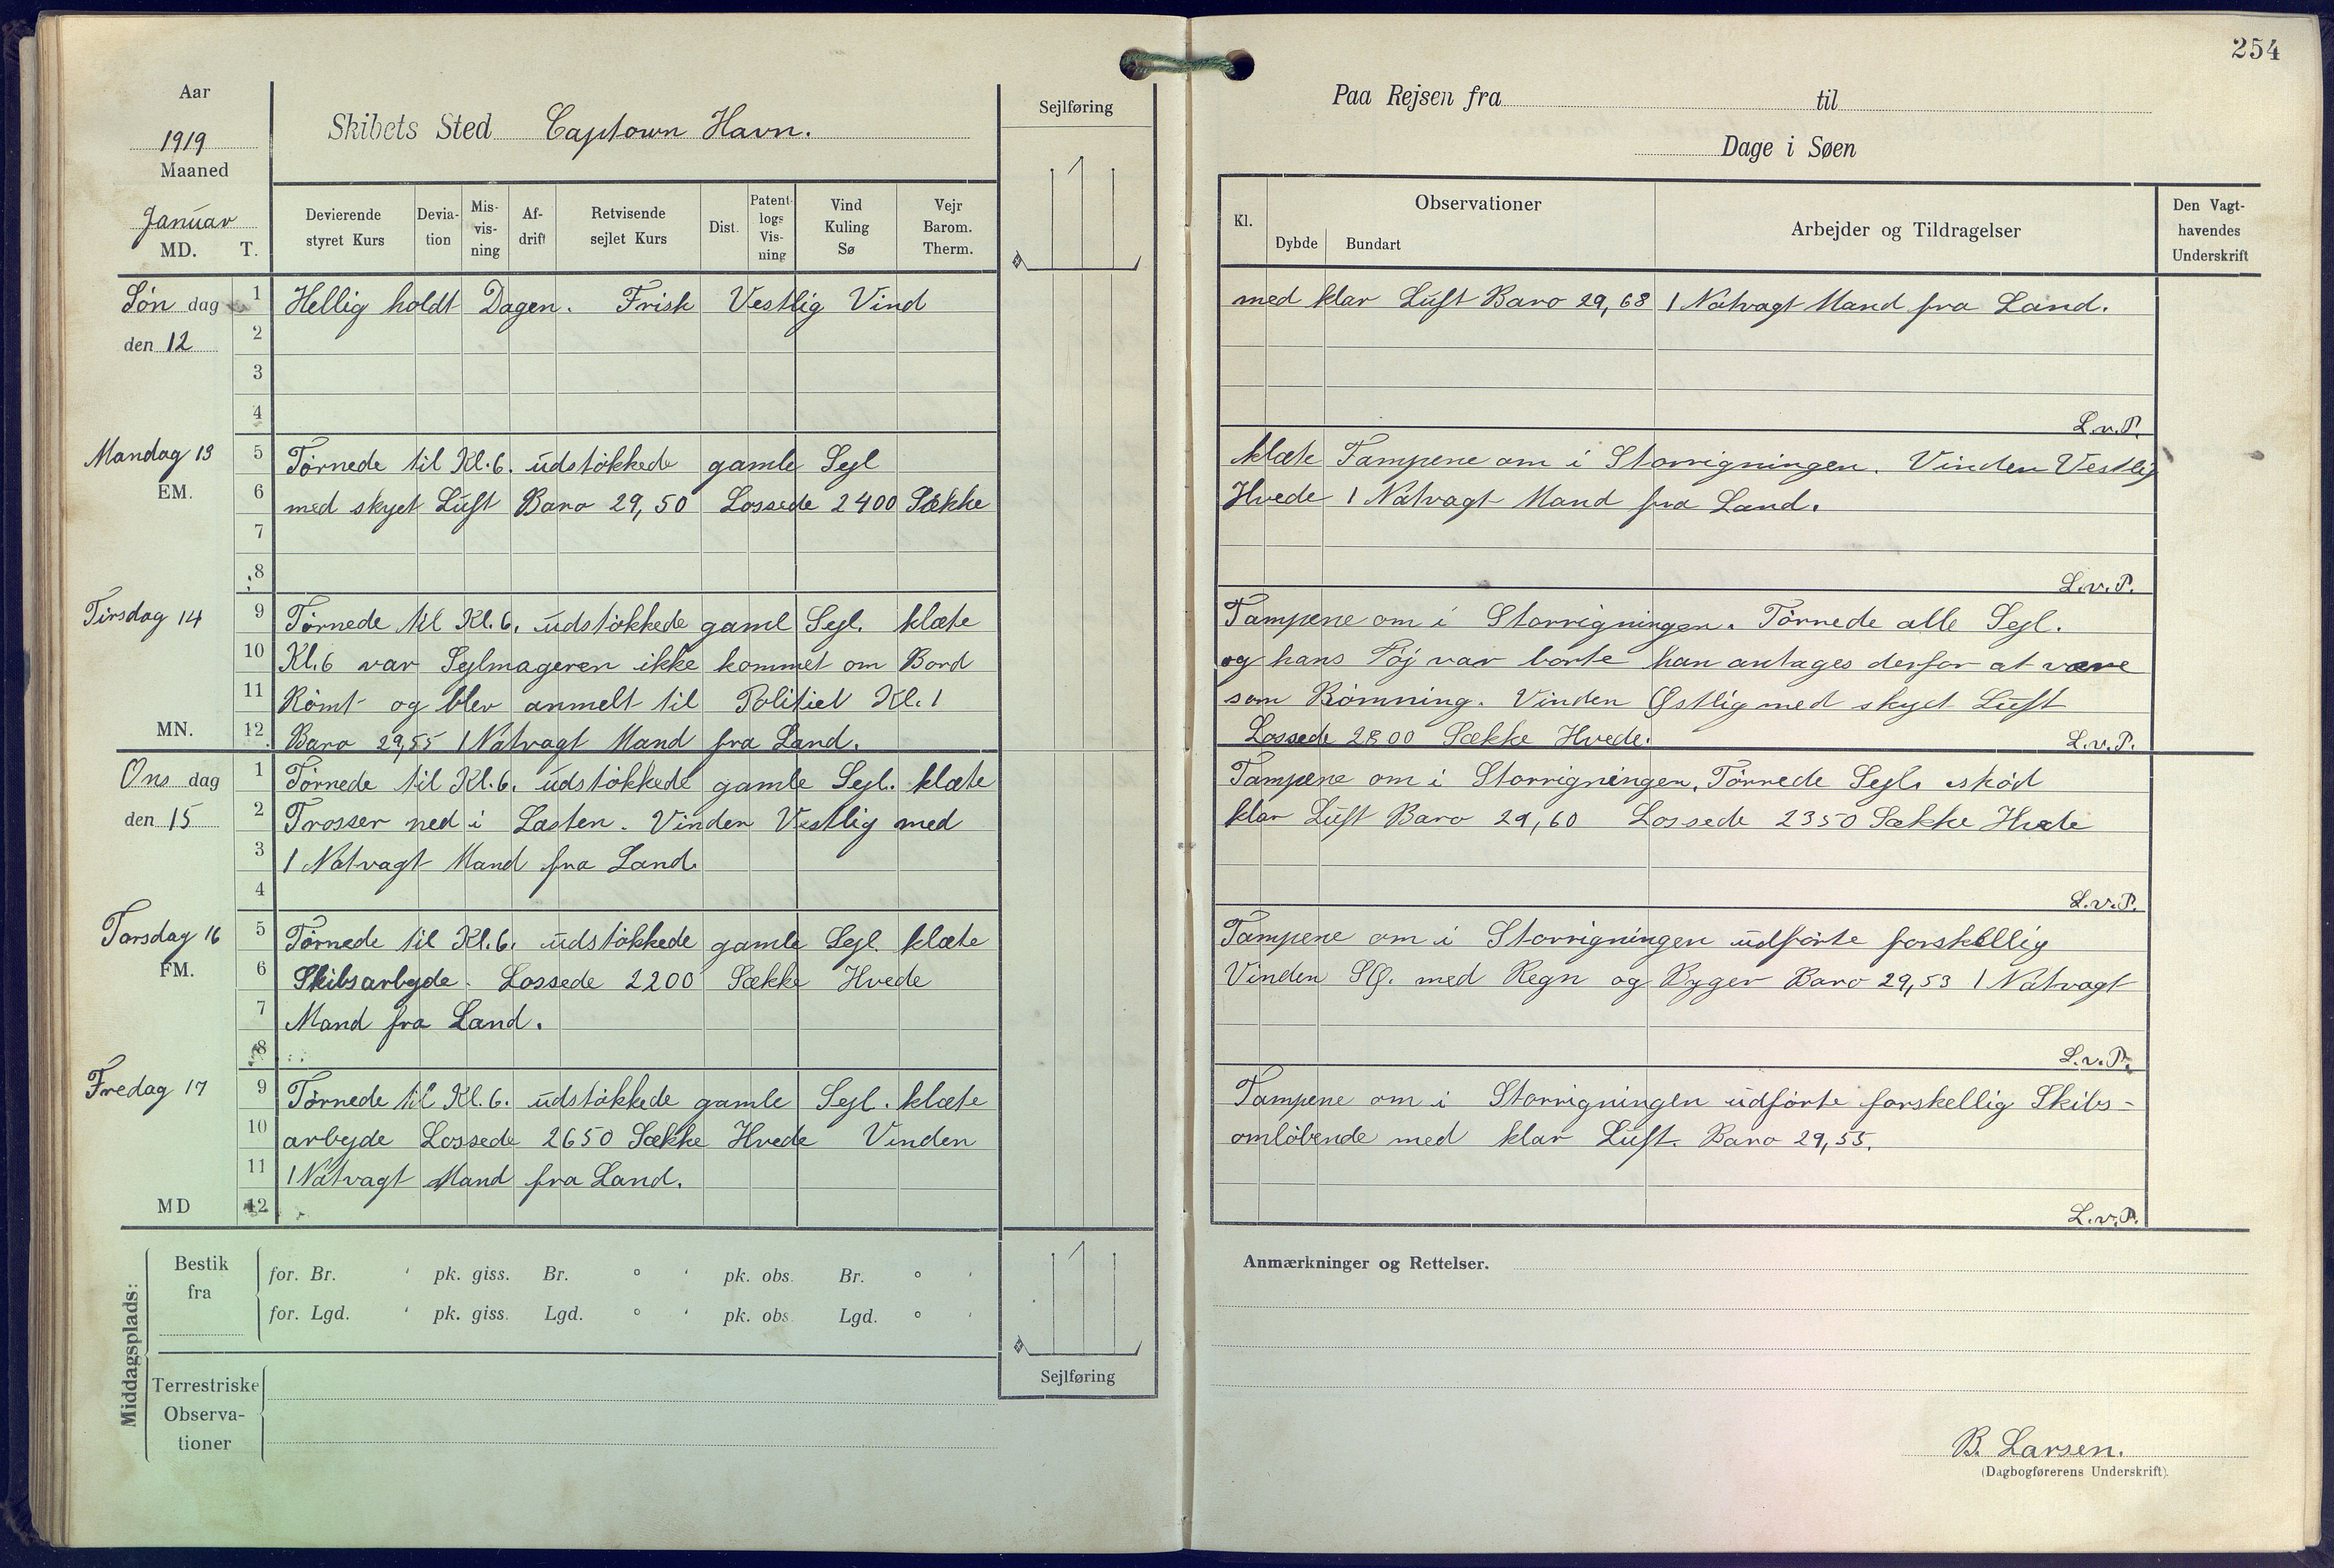 254
Aar
1919
Maaned
Januar
MD. T.
Skibets Sted Captown Havn.
Sejlføring
Devierende styret Kurs
Devia-tion
Mis-vis-ning
Af-drift
Retvisende sejlet Kurs
Dist.
Patent-logs Vis-ning
Vind Kuling Sø
Vejr Barom. Therm.
Paa Rejsen fra til
Dage i Søen
Kl.
Observationer
Dybde Bundart
Arbejder og Tildragelser
Den Vagt-havendes Underskrift
Søn dag
den 12
1 Hellig holdt Dagen. Frisk Vestlig Vind
med klar Luft Baro 29,68 1 Natvagt Mand fra Land.
2
3
4
L.v.P.
Mandag 13
EM.
5 Törnede til Kl.6. udstökkede gamle Sejl
klæte Tampene om i Storrigningen. Vinden Vestlig
6 med skyet Luft Baro 29,50 Lossede 2400 Sække
Hvede 1 Natvagt Mand fra Land.
7
8
L.v.P.
Tirsdag 14
9 Törnede til Kl.6. udstökkede gaml Sejl. klæte
Tampene om i Storrigningen. Törrede alle Sejl.
10 Kl.6 var Sejlmageren ikke kommet om Bord
og hans Töj var borte han antages derfor at være
11 Römt og blev anmelt til Politiet Kl.1
som Römning. Vinden Østlig med skyet Luft
MN.
12 Baro 29,55 1 Natvagt Mand fra Land.
Lossede 2800 Sække Hvede.
L.v.P.
Ons dag
den 15
1 Törnede til Kl.6. udstökkede gamle Sejl. klæte
Tampene om i Storrigningen, Törrede Sejl, skød
2 Trosser ned i Lasten. Vinden Vestlig med
klar Luft Baro 29,60 Lossede 2350 Sække Hvede
3 1 Natvagt Mand fra Land.
4
L.v.P.
Torsdag 16
FM.
5 Törnede til Kl.6. udstökkede gamle Sejl klæte
Tampene om i Storrigningen udførte forskellig
6 Skibsarbejde. Lossede 2200 Sække Hvede
Vinden SØ. med Regn og Byger Baro 29,53 1 Natvagt
7 Mand fra Land.
8
L.v.P.
Fredag 17
9 Törnede til Kl.6. udstökkede gamle Sejl. klæte
Tampene om i Storrigningen udförte forskellig Skibs-
10 arbejde Lossede 2650 Sække Hvede Vinden
omløbende med klar Luft. Baro 29,55.
11 1 Natvagt Mand fra Land.
MD
12
L.v.P.
Middagsplads:
Bestik fra
for. Br. ' pk. giss. Br. ° ' pk. obs. Br. ° '
for. Lgd. ' pk. giss. Lgd. ° ' pk. obs. Lgd. ° '
Terrestriske
Observa-
tioner
Sejlføring
Anmærkninger og Rettelser.
B. Larsen.
(Dagbogførerens Underskrift).